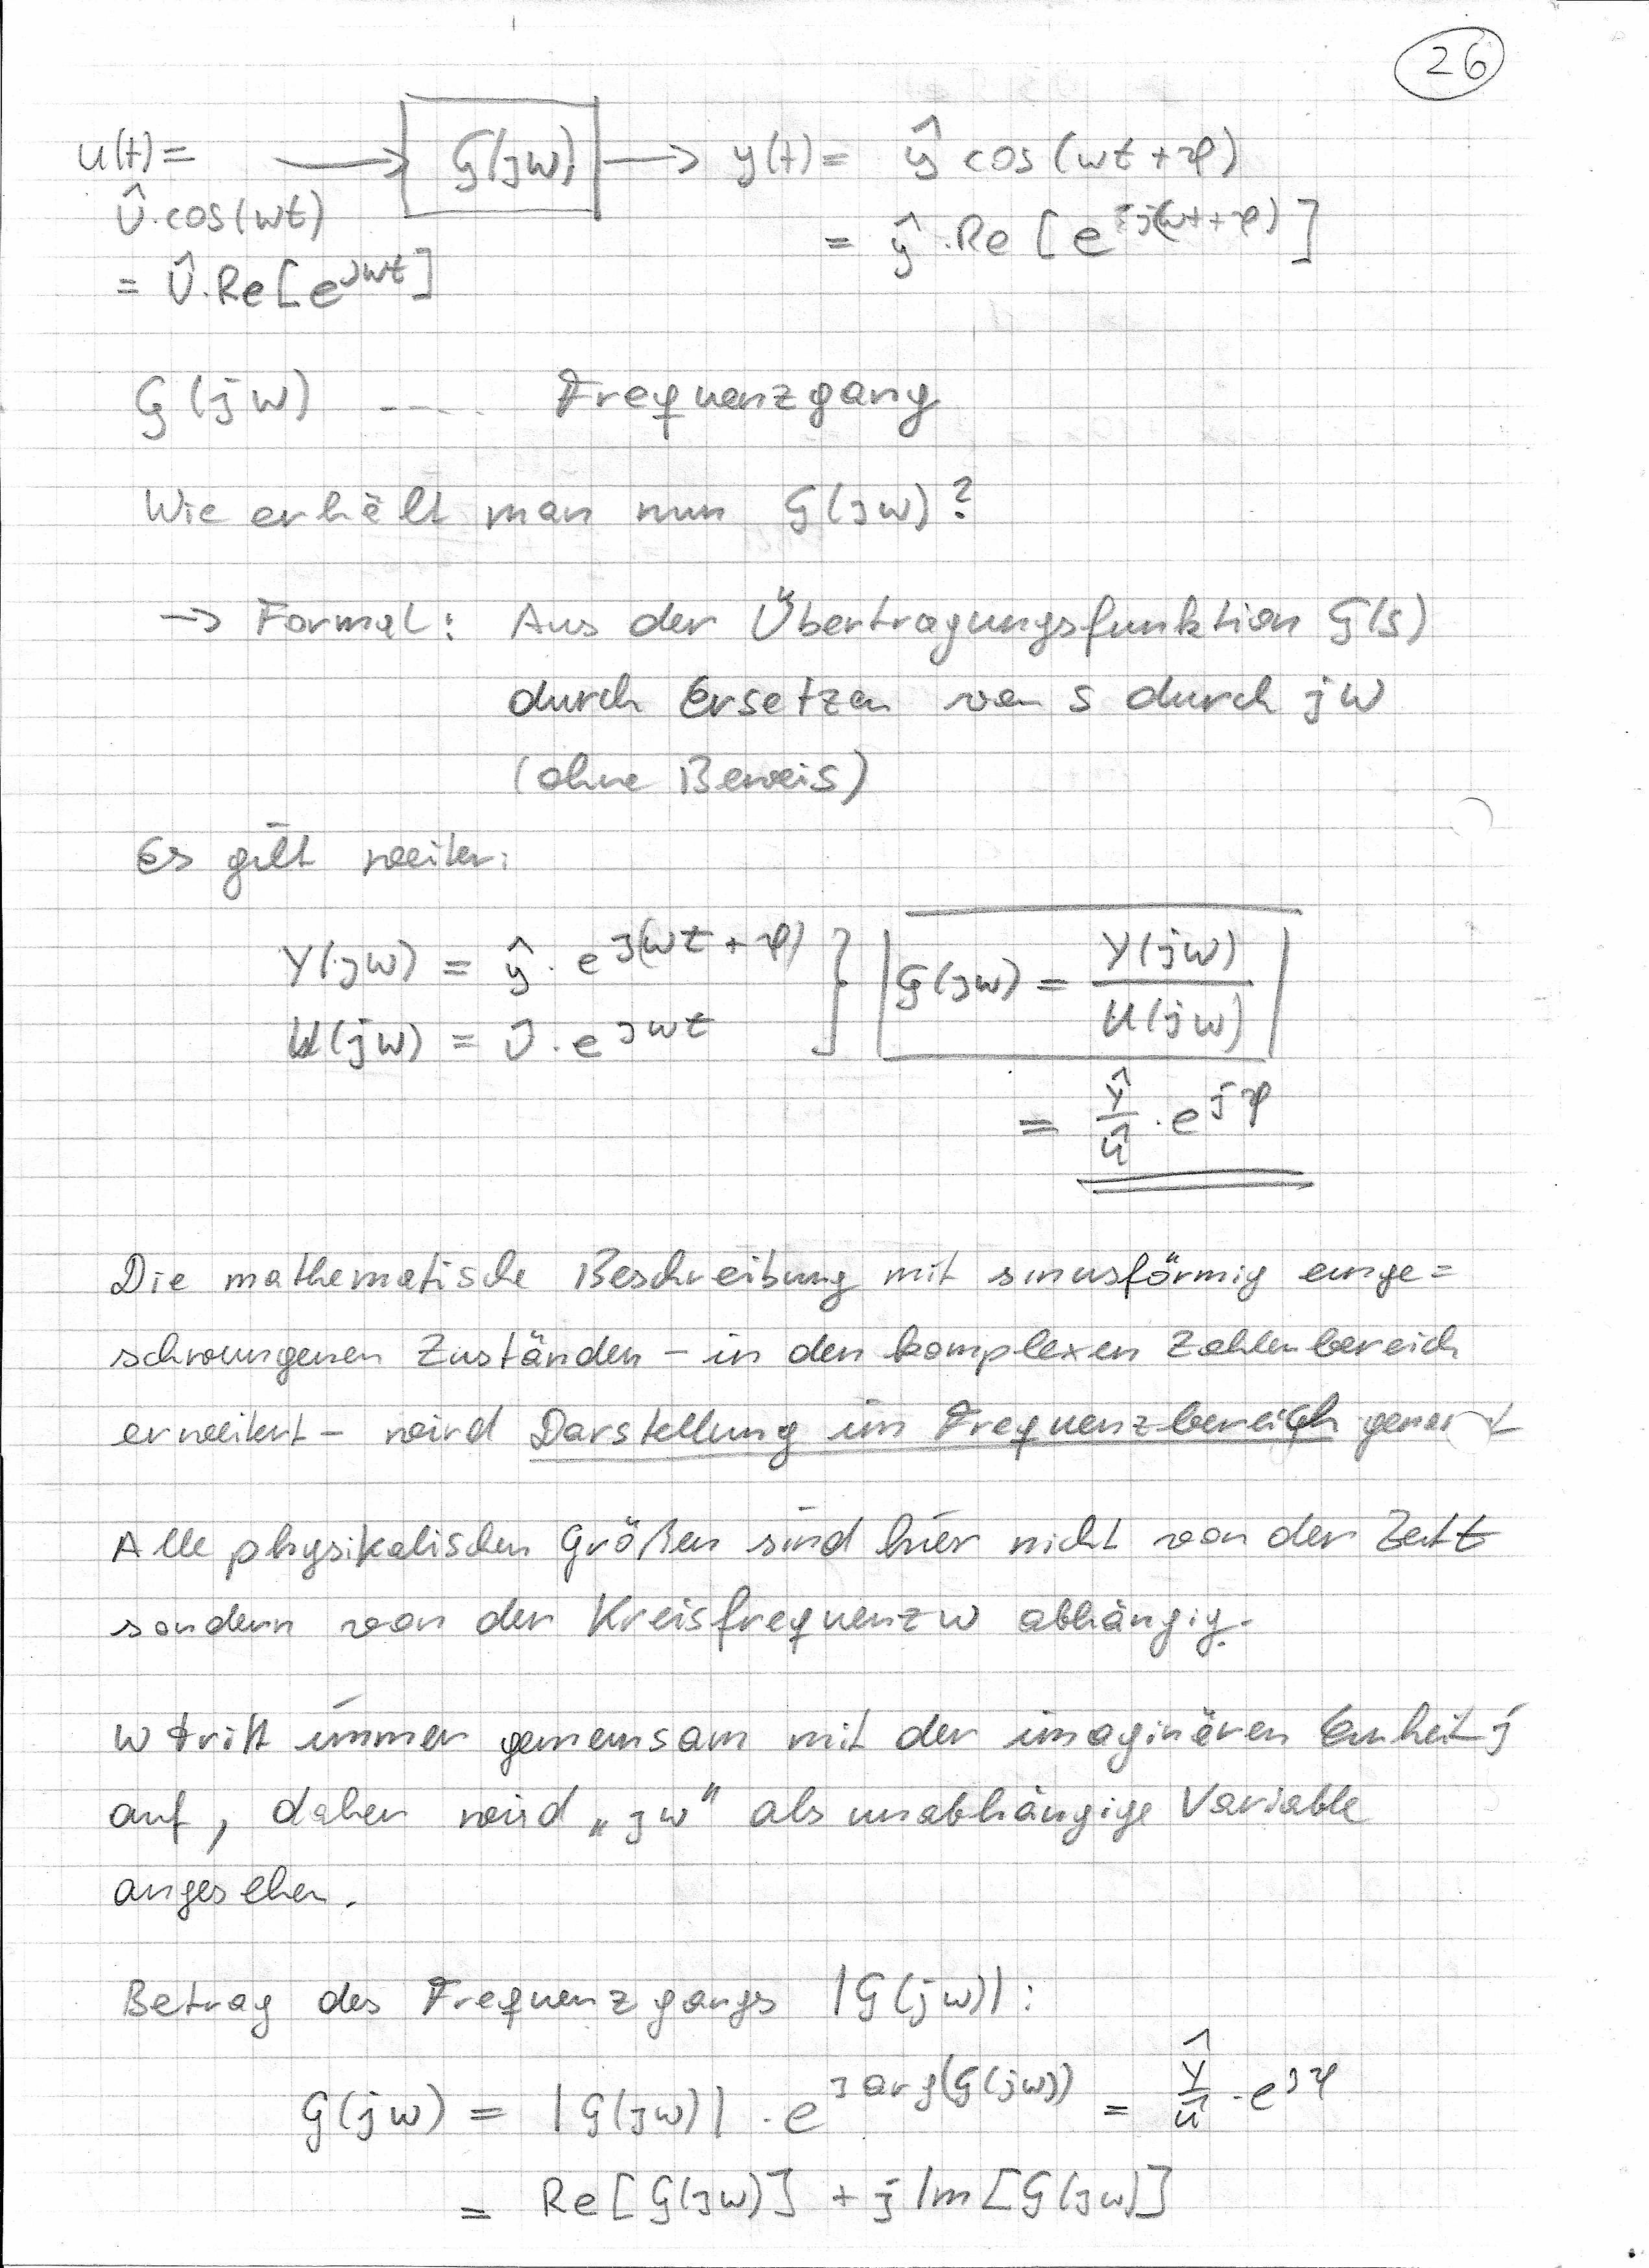 26
u(t) = → G(jω) → y(t) = ŷ cos(ωt + φ)
Û·cos(ωt) = ŷ·Re[e^j(ωt+φ)]
= Û·Re[e^jωt]
G(jω) .... Frequenzgang
Wie erhält man nun G(jω)?
→ Formal: Aus der Übertragungsfunktion G(s)
durch Ersetzen von s durch jω
(ohne Beweis)
Es gilt weiter:
Y(jω) = ŷ · e^j(ωt + φ) } G(jω) = Y(jω)/U(jω)
U(jω) = Û · e^jωt
= Ŷ/û · e^jφ
Die mathematische Beschreibung mit sinusförmig einge=
schwungenen Zuständen – in den komplexen Zahlenbereich
erweitert – wird Darstellung im Frequenzbereich genannt
Alle physikalischen Größen sind hier nicht von der Zeit t
sondern von der Kreisfrequenz ω abhängig.
ω tritt immer gemeinsam mit der imaginären Einheit j
auf, daher wird „jω" als unabhängige Variable
angesehen.
Betrag des Frequenzgangs |G(jω)|:
G(jω) = |G(jω)| · e^j arg(G(jω)) = Ŷ/û · e^jφ
= Re[G(jω)] + j Im[G(jω)]